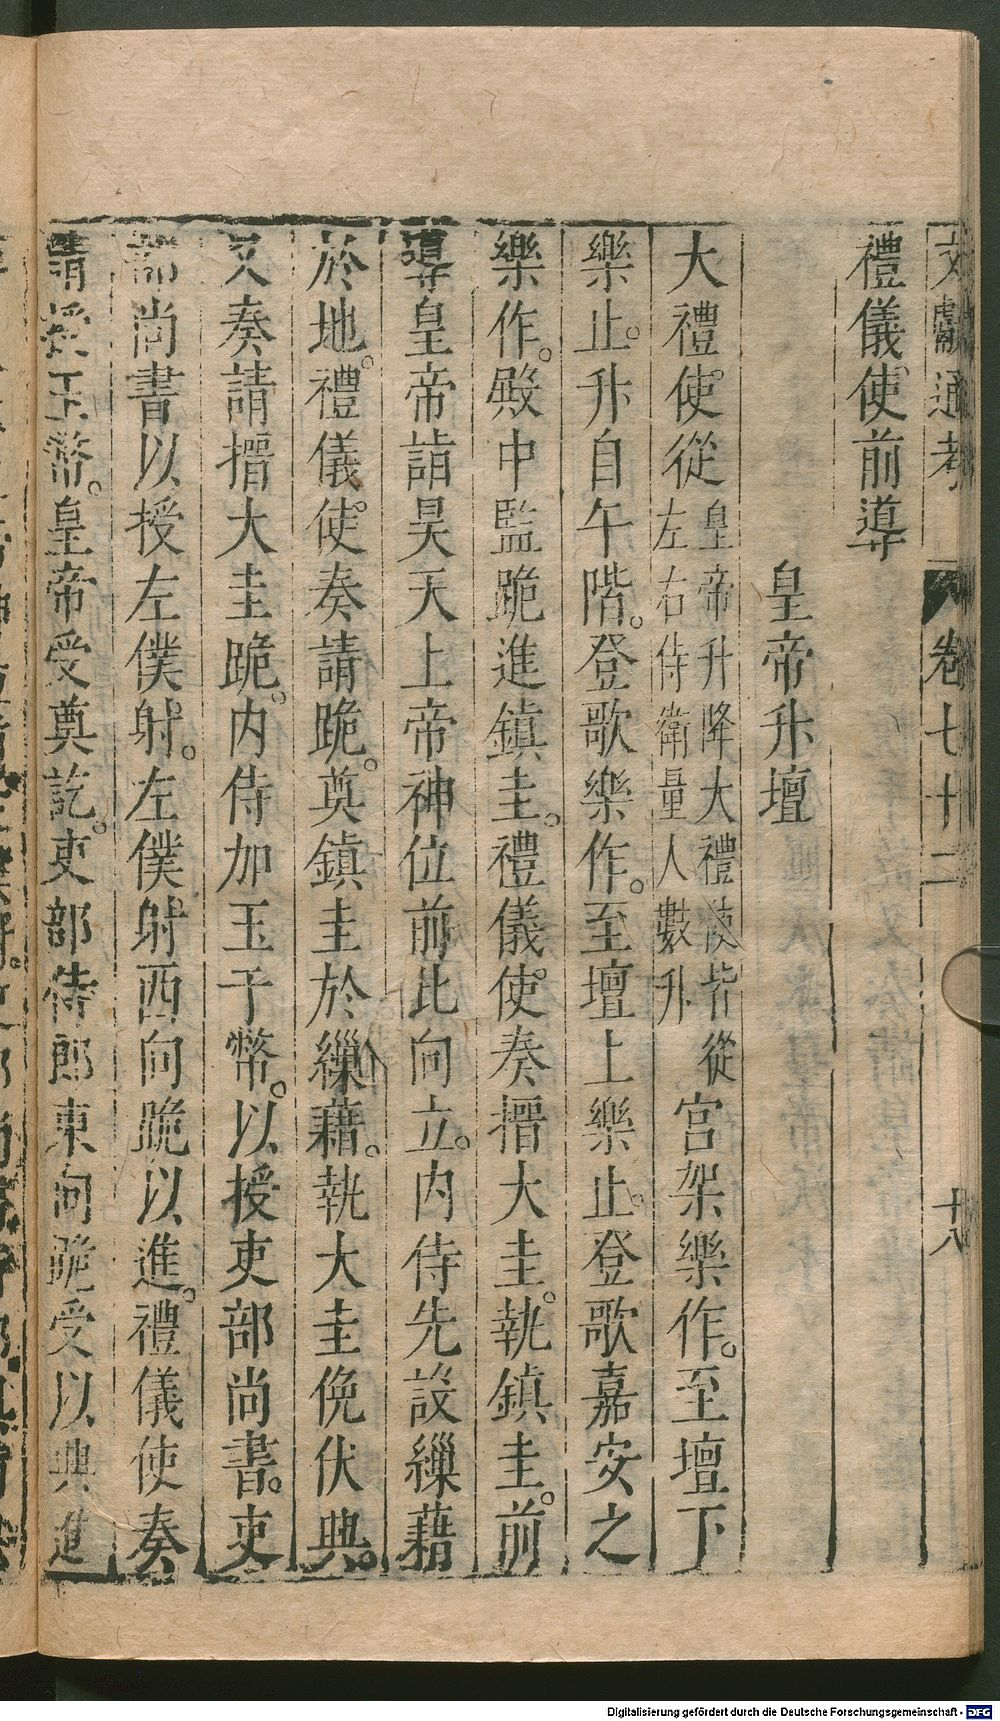 文獻通考 卷七十二 十八
禮儀使前導
皇帝升壇
大禮使從皇帝升降大禮使皆從左右侍衛量人數升宮架樂作。至壇下
樂止。升自午階。登歌樂作。至壇上樂止。登歌嘉安之
樂作。殿中監跪進鎮圭。禮儀使奏搢大圭。執鎮圭。前
導皇帝詣昊天上帝神位前北向立。內侍先設繅藉
於地。禮儀使奏請跪。奠鎮圭於繅藉。執大圭俛伏興。
又奏請搢大圭跪。內侍加玉于幣。以授吏部尚書。吏
部尚書以授左僕射。左僕射西向跪以進。禮儀使奏
請授玉幣。皇帝受奠訖。吏部侍郎東向跪受以興進
Digitalisierung gefördert durch die Deutsche Forschungsgemeinschaft - DFG